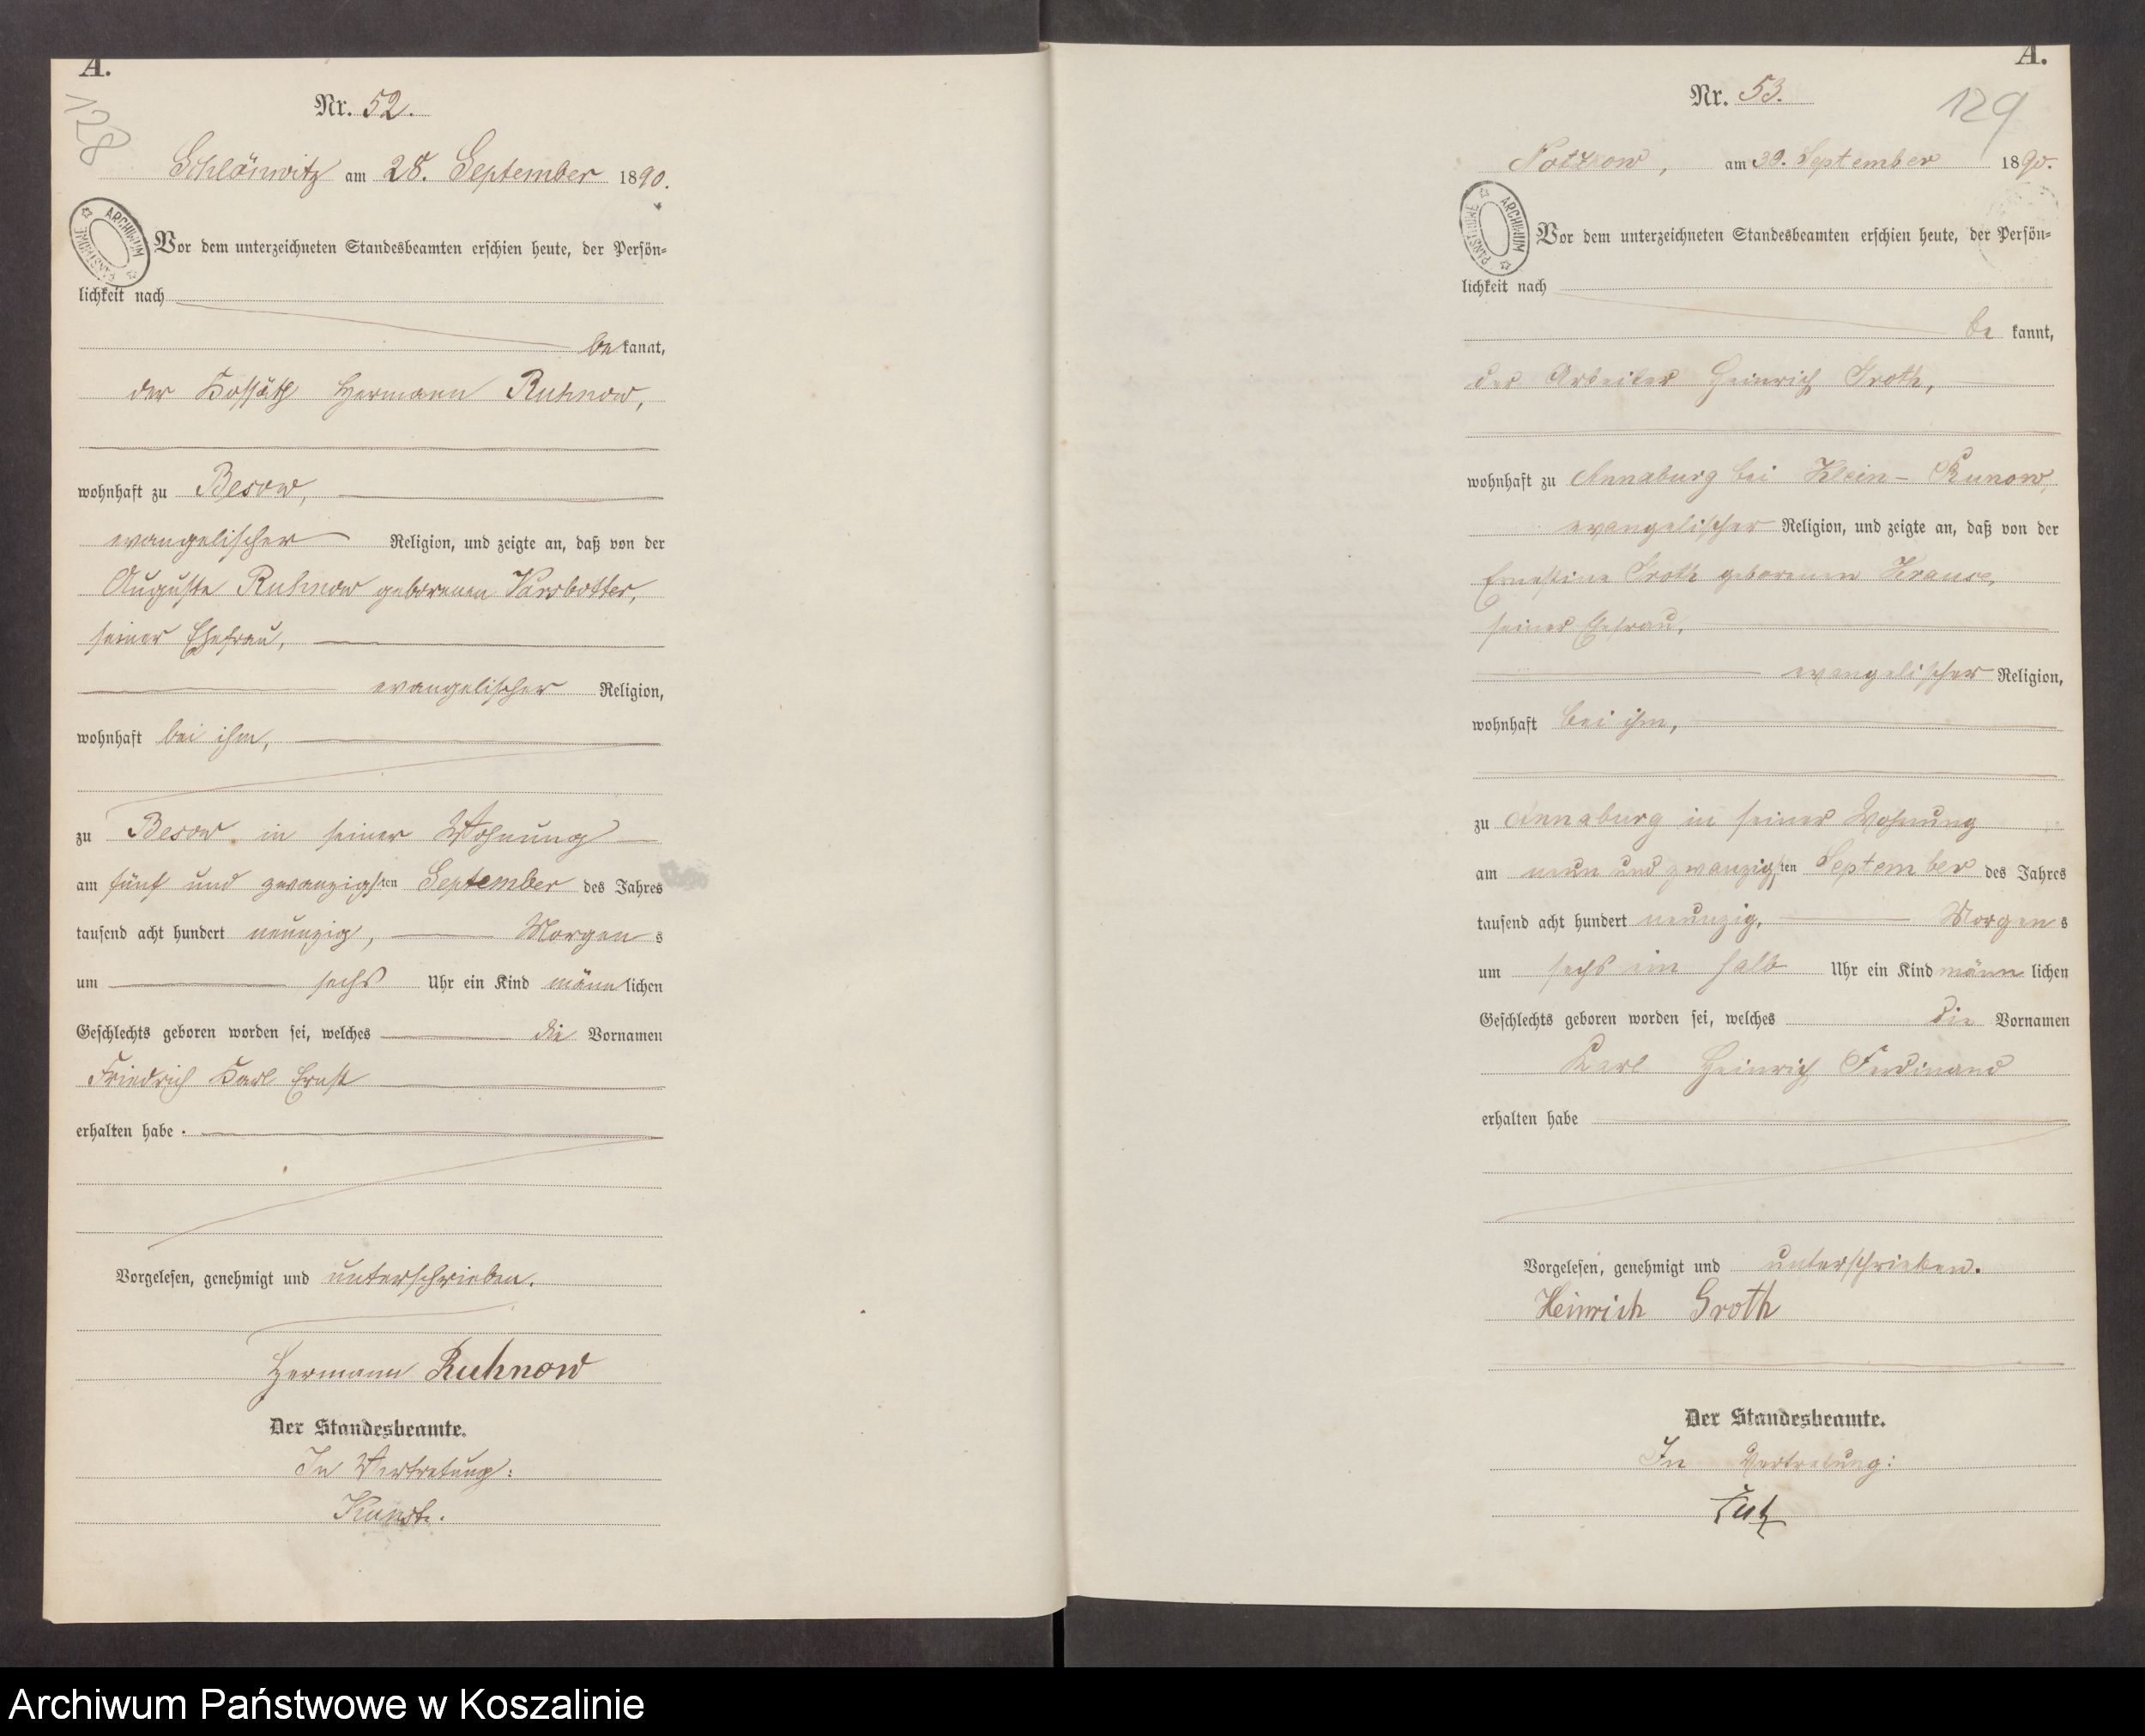 A.
128
Nr. 52.
Schlönwitz am 28. September 1890.
ARCHIWUM PAŃSTWOWE
Vor dem unterzeichneten Standesbeamten erschien heute, der Persön-
lichkeit nach
be kannt,
der Kossäth Hermann Ruhnow,
wohnhaft zu Besow,
evangelischer Religion, und zeigte an, daß von der
Auguste Ruhnow geborenen Varbotter,
seiner Ehefrau,
evangelischer Religion,
wohnhaft bei ihm,
zu Besow in seiner Wohnung
am fünf und zwanzigsten September des Jahres
tausend acht hundert neunzig, Morgens
um sechs Uhr ein Kind männlichen
Geschlechts geboren worden sei, welches die Vornamen
Friedrich Karl Ernst
erhalten habe.
Vorgelesen, genehmigt und unterschrieben.
Hermann Ruhnow
Der Standesbeamte.
In Vertretung:
A.
129
Nr. 53.
am 30. September 1890.
ARCHIWUM PAŃSTWOWE
Vor dem unterzeichneten Standesbeamten erschien heute, der Persön-
lichkeit nach
be kannt,
der Arbeiter Heinrich Groth,
wohnhaft zu Annaburg bei Klein-Runow,
evangelischer Religion, und zeigte an, daß von der
Ernestine Groth geborenen Krause,
seiner Ehefrau,
evangelischer Religion,
wohnhaft bei ihm,
zu Annaburg in seiner Wohnung
am neun und zwanzigsten September des Jahres
tausend acht hundert neunzig, Morgens
um sechs ein halb Uhr ein Kind männlichen
Geschlechts geboren worden sei, welches die Vornamen
Karl Heinrich Ferdinand
erhalten habe
Vorgelesen, genehmigt und unterschrieben.
Heinrich Groth
Der Standesbeamte.
In Vertretung:
Archiwum Państwowe w Koszalinie